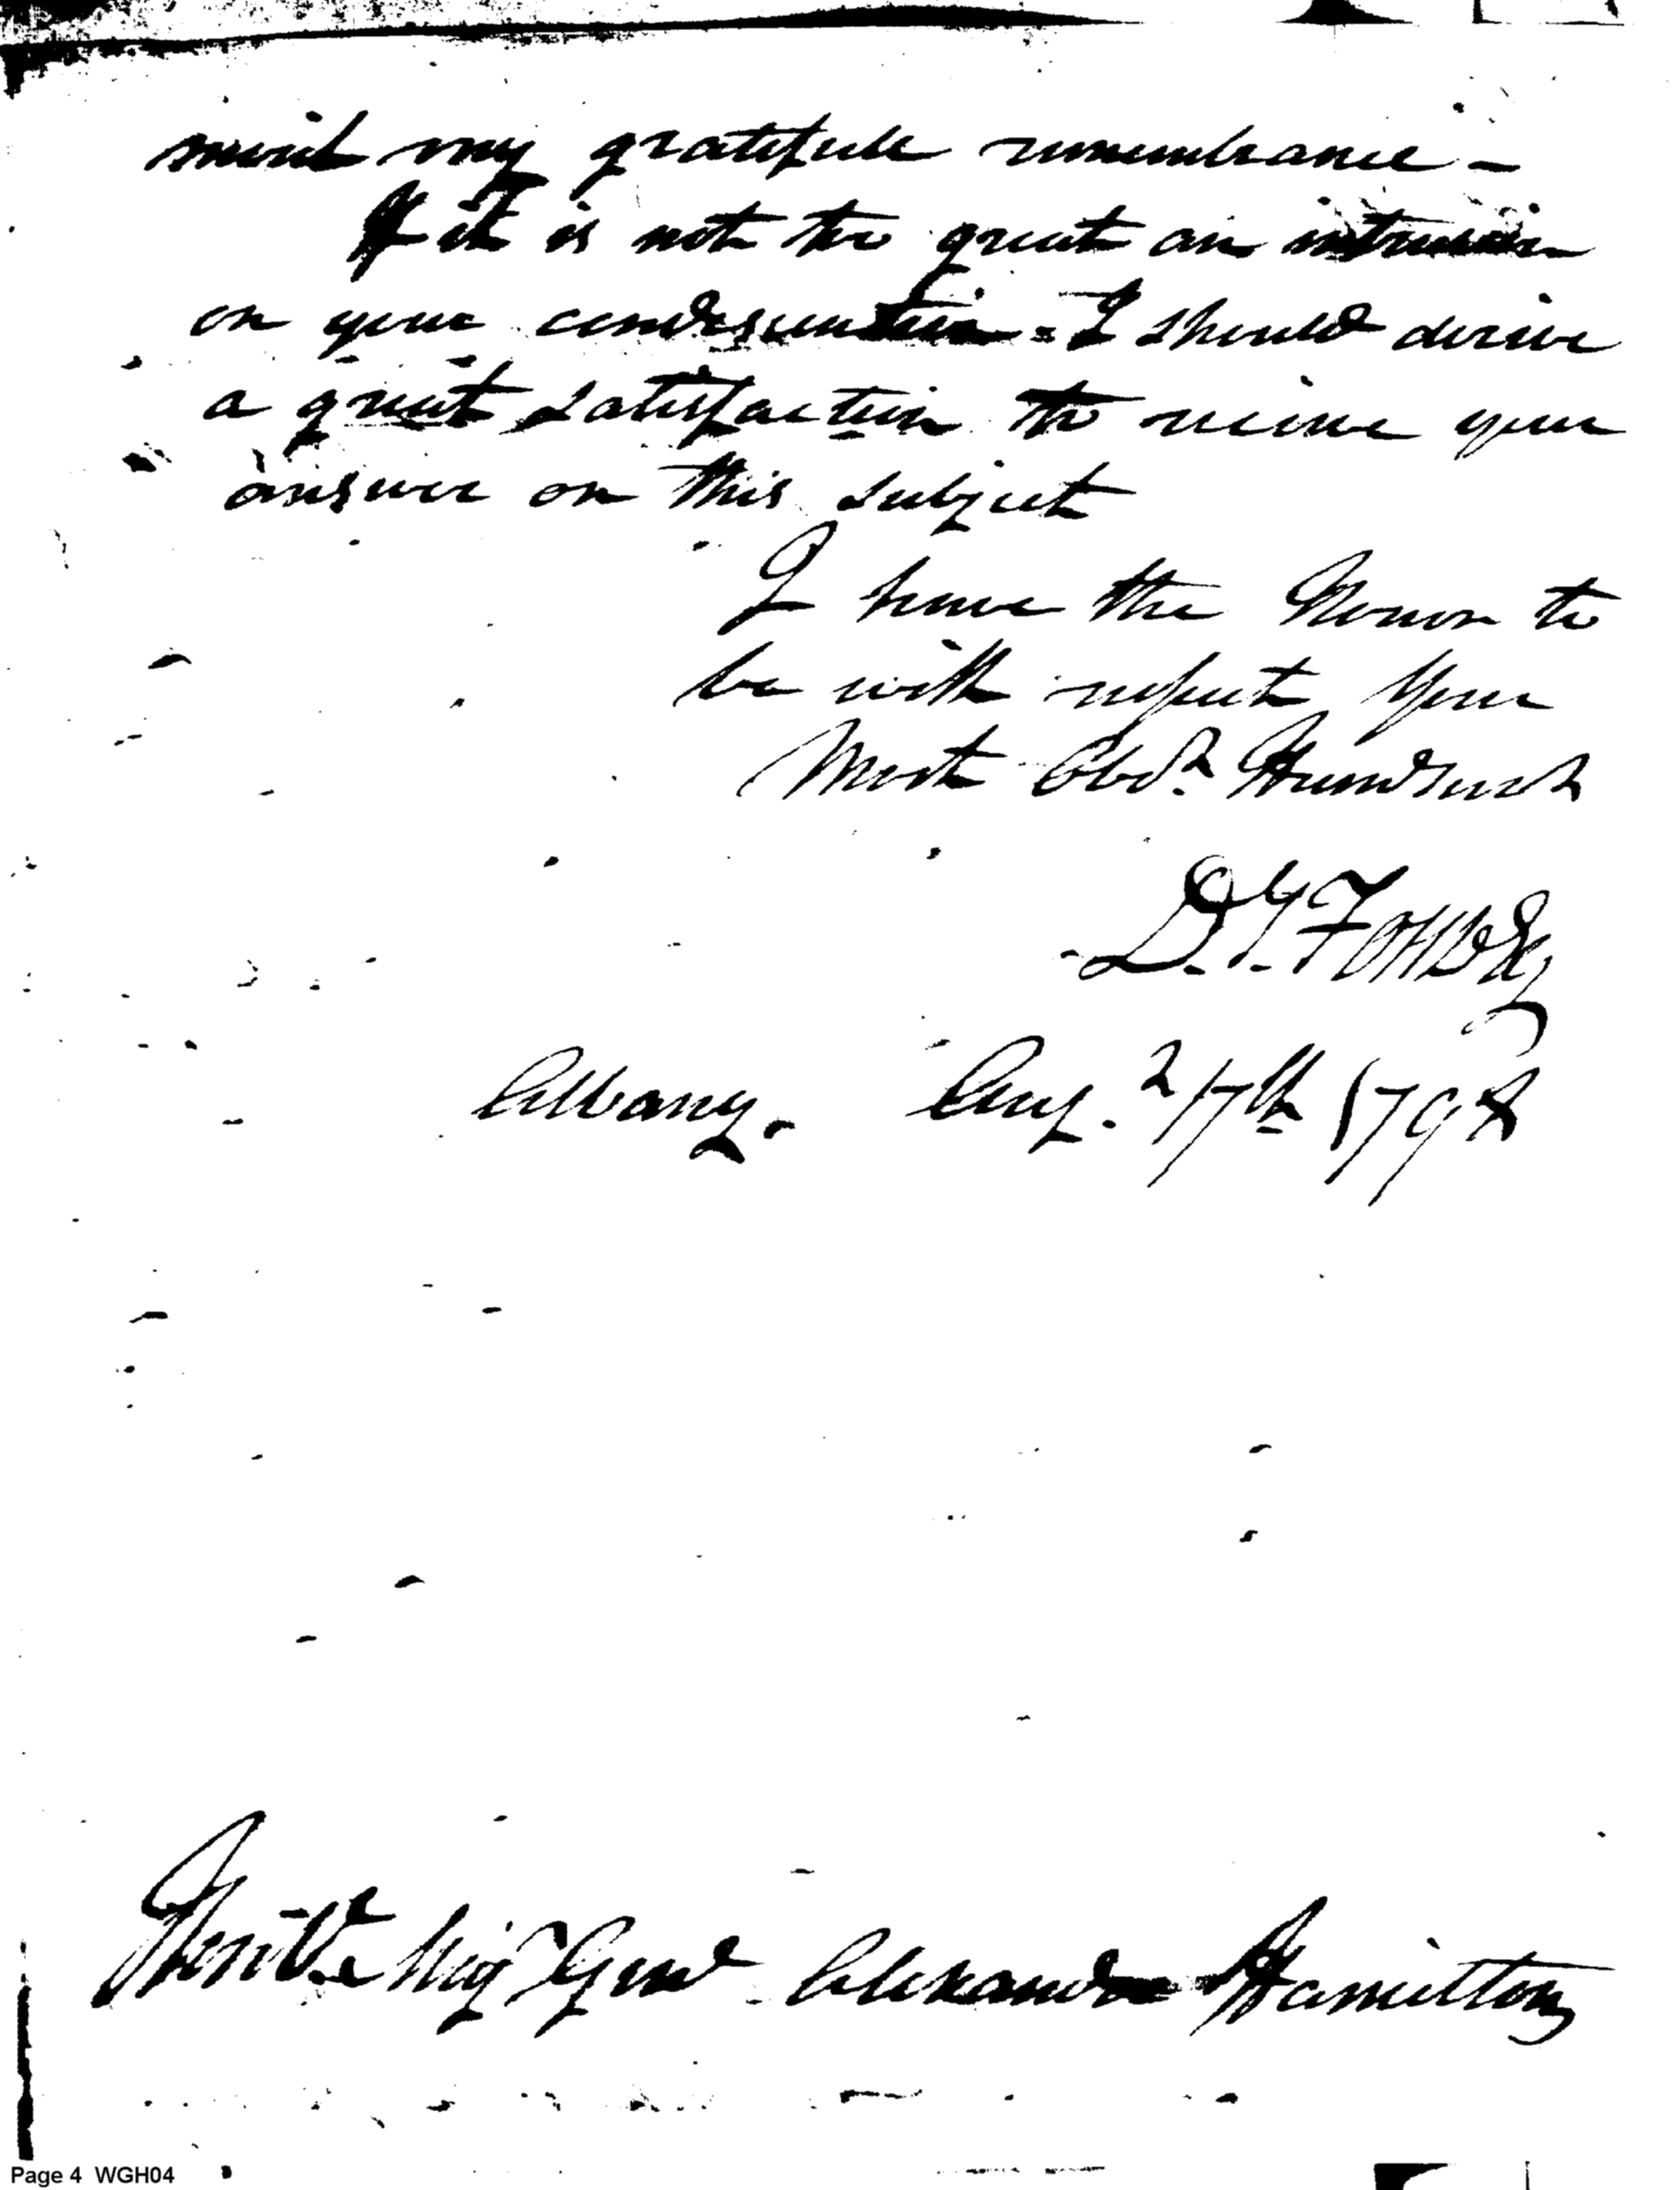 merit my gratefull remembrance -
If it is not too great an intrusion
on your condescention - I should derive
a great satisfaction to recieve your
answer on this subject
I have the Honor to
be with respect Your
Most Obdt Humb Servt
D. Y. Fonda
Albany. Aug. 27th 1798
Honble Maj Genl Alexander Hamilton
Page 4 WGH04